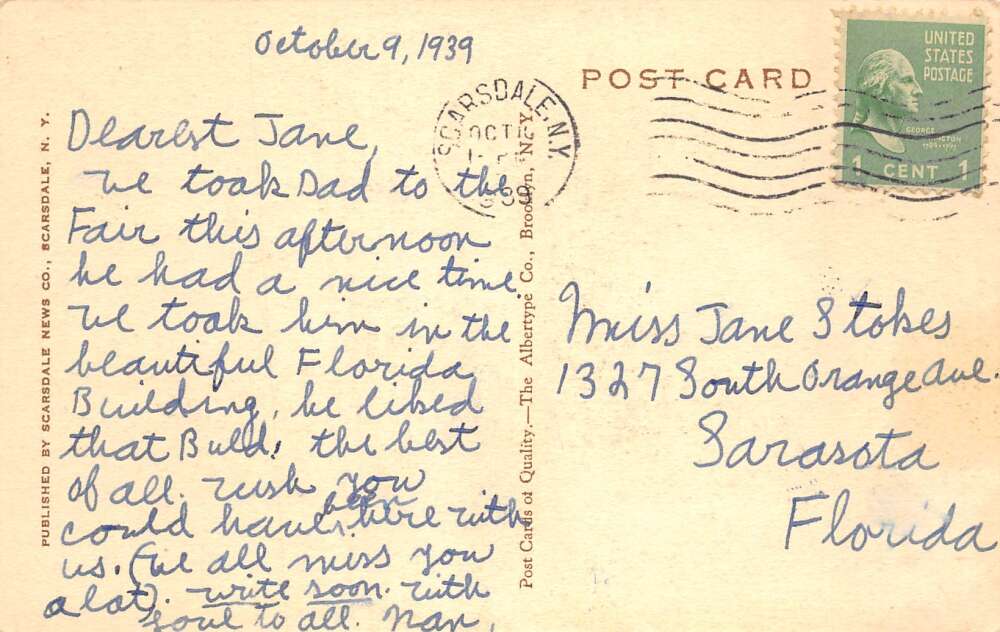 October 9, 1939
Dearest Jane,
We took Dad to the
Fair this afternoon
he had a nice time.
We took him in the
beautiful Florida
Building, he liked
that Build. the best
of all. wish you
could have been here with
us. (we all miss you
a lot). write soon. with
love to all. Nan.
PUBLISHED BY SCARSDALE NEWS CO., SCARSDALE, N. Y.
Post Cards of Quality.—The Albertype Co., Brooklyn, N.Y.
POST CARD
SCARSDALE, N.Y.
OCT
UNITED
STATES
POSTAGE
GEORGE
WASHINGTON
1 CENT 1
Miss Jane Stokes
1327 South Orange Ave.
Sarasota
Florida